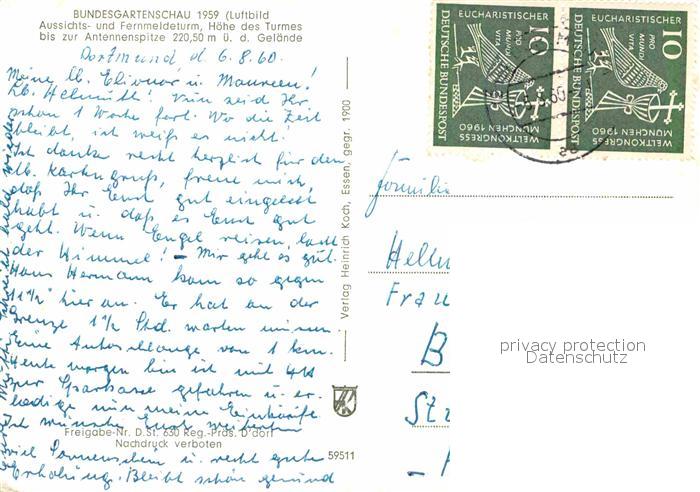 BUNDESGARTENSCHAU 1959 (Luftbild
Aussichts- und Fernmeldeturm, Höhe des Turmes
bis zur Antennenspitze 220,50 m ü. d. Gelände
Dortmund, d. 6.8.60.
Meine lb. Elionor u. Maureen!
Lb. Helmuth! Nun seid Ihr
schon 1 Woche fort. Wo die Zeit
bleibt, ich weiß es nicht!
Ich danke recht herzlich für den
lb. Kartengruß, freue mich,
daß Ihr Euch gut eingelebt
habt u. daß es Euch gut
geht. Wenn Engel reisen, lacht
der Himmel! - Mir geht es gut.
Hans Hermann kam so gegen
11½ hier an. Er hat an der
Grenze 1½ Std. warten müssen.
Eine Autoschlange von 1 km.
Heute morgen bin ich mit
zur Sparkasse gefahren u. er-
ledige nun meine Einkäufe
Ich wünsche Euch weiterhin
Freigabe-Nr. D.St. 630 Reg.-Präs. D'dorf
Nachdruck verboten
viel Sonnenschein u. recht gute
59511
Erholung. Bleibt schön gesund
Verlag Heinrich Koch, Essen, gegr. 1900
EUCHARISTISCHER
PRO MUNDI VITA
10
WELTKONGRESS
MÜNCHEN 1960
DEUTSCHE BUNDESPOST
EUCHARISTISCHER
PRO MUNDI VITA
10
WELTKONGRESS
MÜNCHEN 1960
DEUTSCHE BUNDESPOST
Familie
Helm
Frau
B
Str
privacy protection
Datenschutz